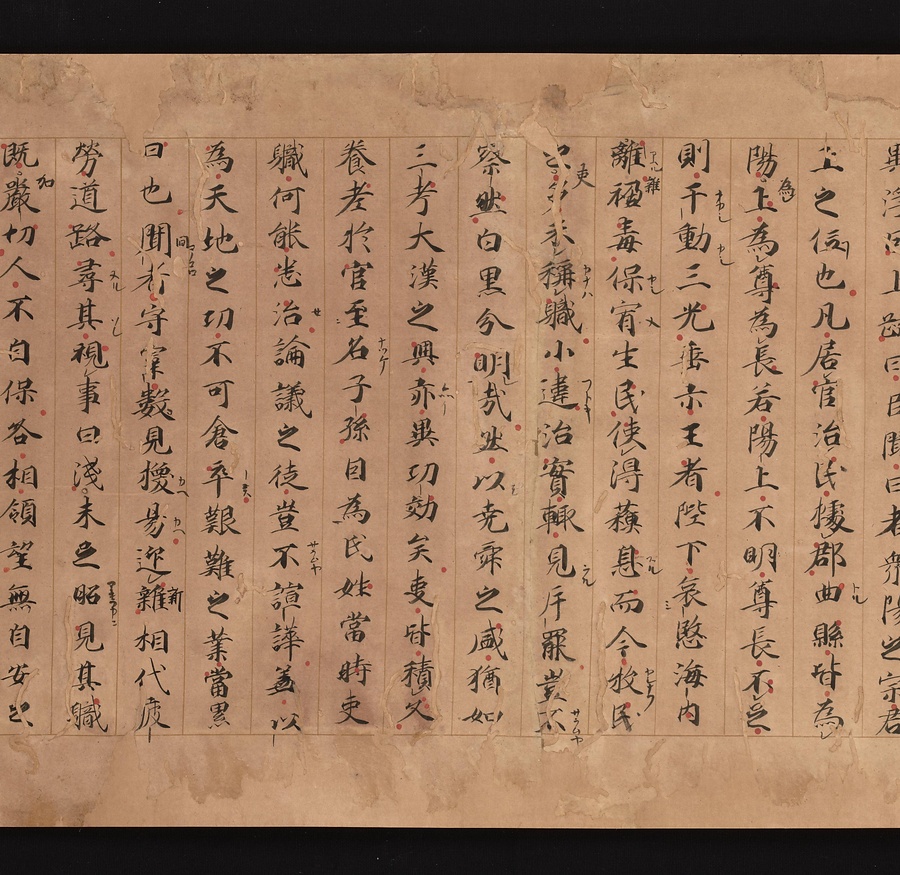 異浮因上疏曰臣聞日者衆陽之宗君
上之位也凡居官治民據郡曲縣皆為
陽上為尊為長若陽上不明尊長不足
則干動三光垂示王者陛下哀愍海内
離禍毒保宥生民使得蘓息而令牧民
之多未稱職小違治實輒見斥罷豈不
察然白黒分明哉然以尭舜之盛猶如
三考大漢之興亦累功効矣吏皆積久
養老於官至名子孫因為氏姓當時吏
職何能悉治論議之徒豈不諠譁蓋以
為天地之功不可倉卒艱難之業當累
日也聞者守宰數見換易迎雜相代疲
勞道路尋其視事日淺未足昭見其職
既嚴切人不自保各相顧望無自安之